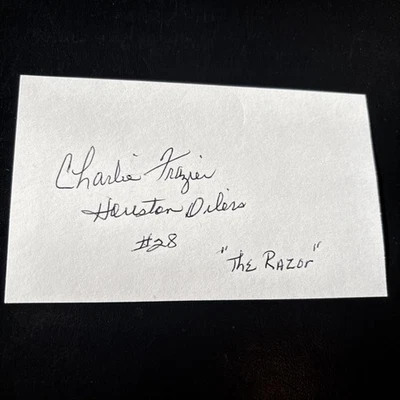 Charlie Frazier
Houston Oilers
#28
"The Razor"